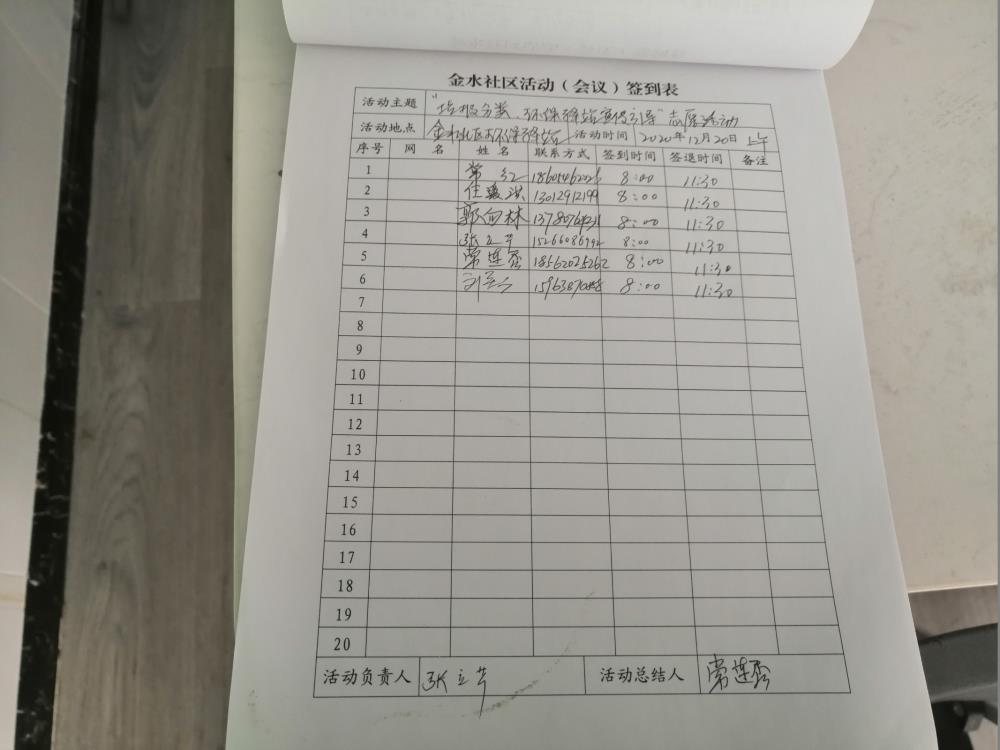 金水社区活动（会议）签到表
活动主题 "垃圾分类、环保驿站宣传引导"志愿活动
活动地点 金水社区环保驿站 活动时间 2020年12月20日 上午
序号 网 名 姓 名 联系方式 签到时间 签退时间 备注
1 常红 8:00 11:30
2 13012912199 8:00 11:30
3 郭向林 8:00 11:30
4 张立芹 8:00 11:30
5 常莲香 18562025262 8:00 11:30
6 8:00 11:30
7
8
9
10
11
12
13
14
15
16
17
18
19
20
活动负责人 张立芹 活动总结人 常莲香